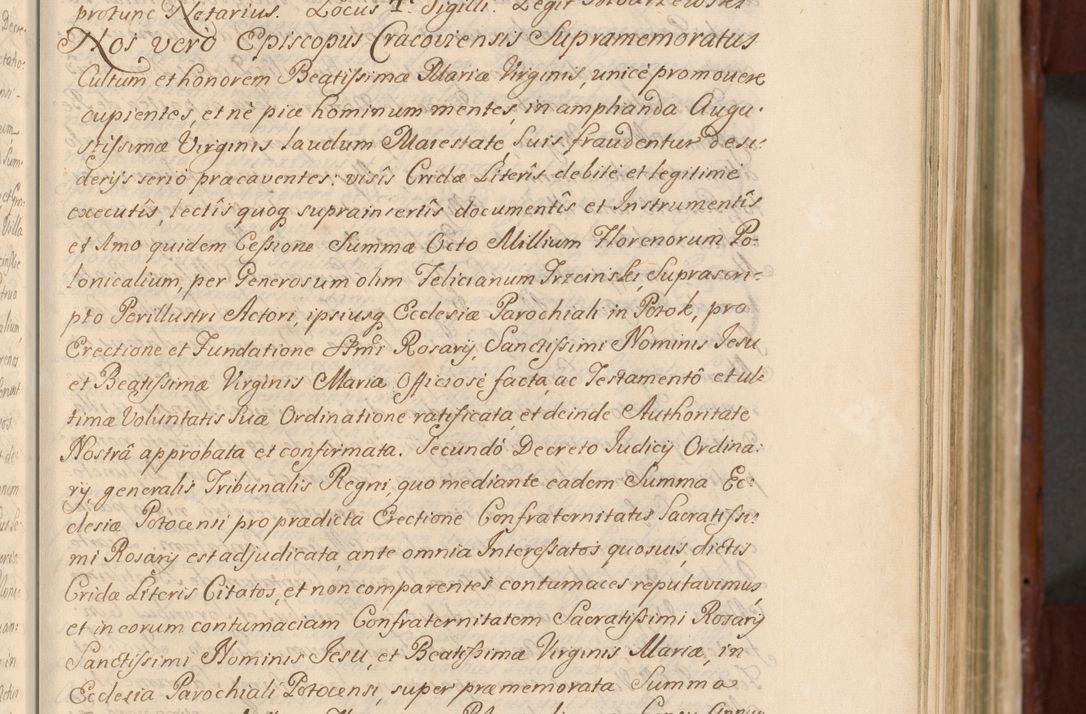 protunc Notarius. Locus Sigilli.
Nos verò Episcopus Cracoviensis Supramemoratus
Cultum et honorem Beatissimæ Mariæ Virginis, unicè promouere
cupientes, et nè piæ hominum mentes, in amplianda Augu-
stissimæ Virginis laudum Maiestate, suis fraudentur Desi-
derijs seriò præcaventes: visîs Cridæ Literîs debitè et legitimè
executîs, lectîs quoq suprainsertîs documentîs et Instrumentîs
et Imo quidem Cessione Summæ Octo Millium Florenorum Po-
lonicalium, per Generosum olim Felicianum Trzcinski, Suprascri-
pto Perillustri Actori, ipsiusq Ecclesiæ Parochiali in Potok, pro
Erectione et Fundatione Ssmi Rosarij, Sanctissimi Nominis Jesu
et Beatissimæ Virginis Mariæ Officiosè facta, ac Testamentô et ul-
timæ Voluntatis Suæ Ordinatione ratificata, et deinde Authoritate
Nostrâ approbata et confirmata. Secundò Decreto Judicij Ordina-
rij, generalis Tribunalis Regni, quo mediante eadem Summa Ec-
clesiæ Potocensi pro prædicta Erectione Confraternitatis Sacratissi-
mi Rosarij est adjudicata, ante omnia Interessatos quosuis, dictis
Cridæ Literis Citatos, et non comparentes contumaces reputavimus,
et in eorum contumaciam Confraternitatem Sacratissimi Rosarij
Sanctissimi Nominis Jesu, et Beatissimæ Virginis Mariæ, in
Ecclesia Parochiali Potocensi, super præmemorata Summa